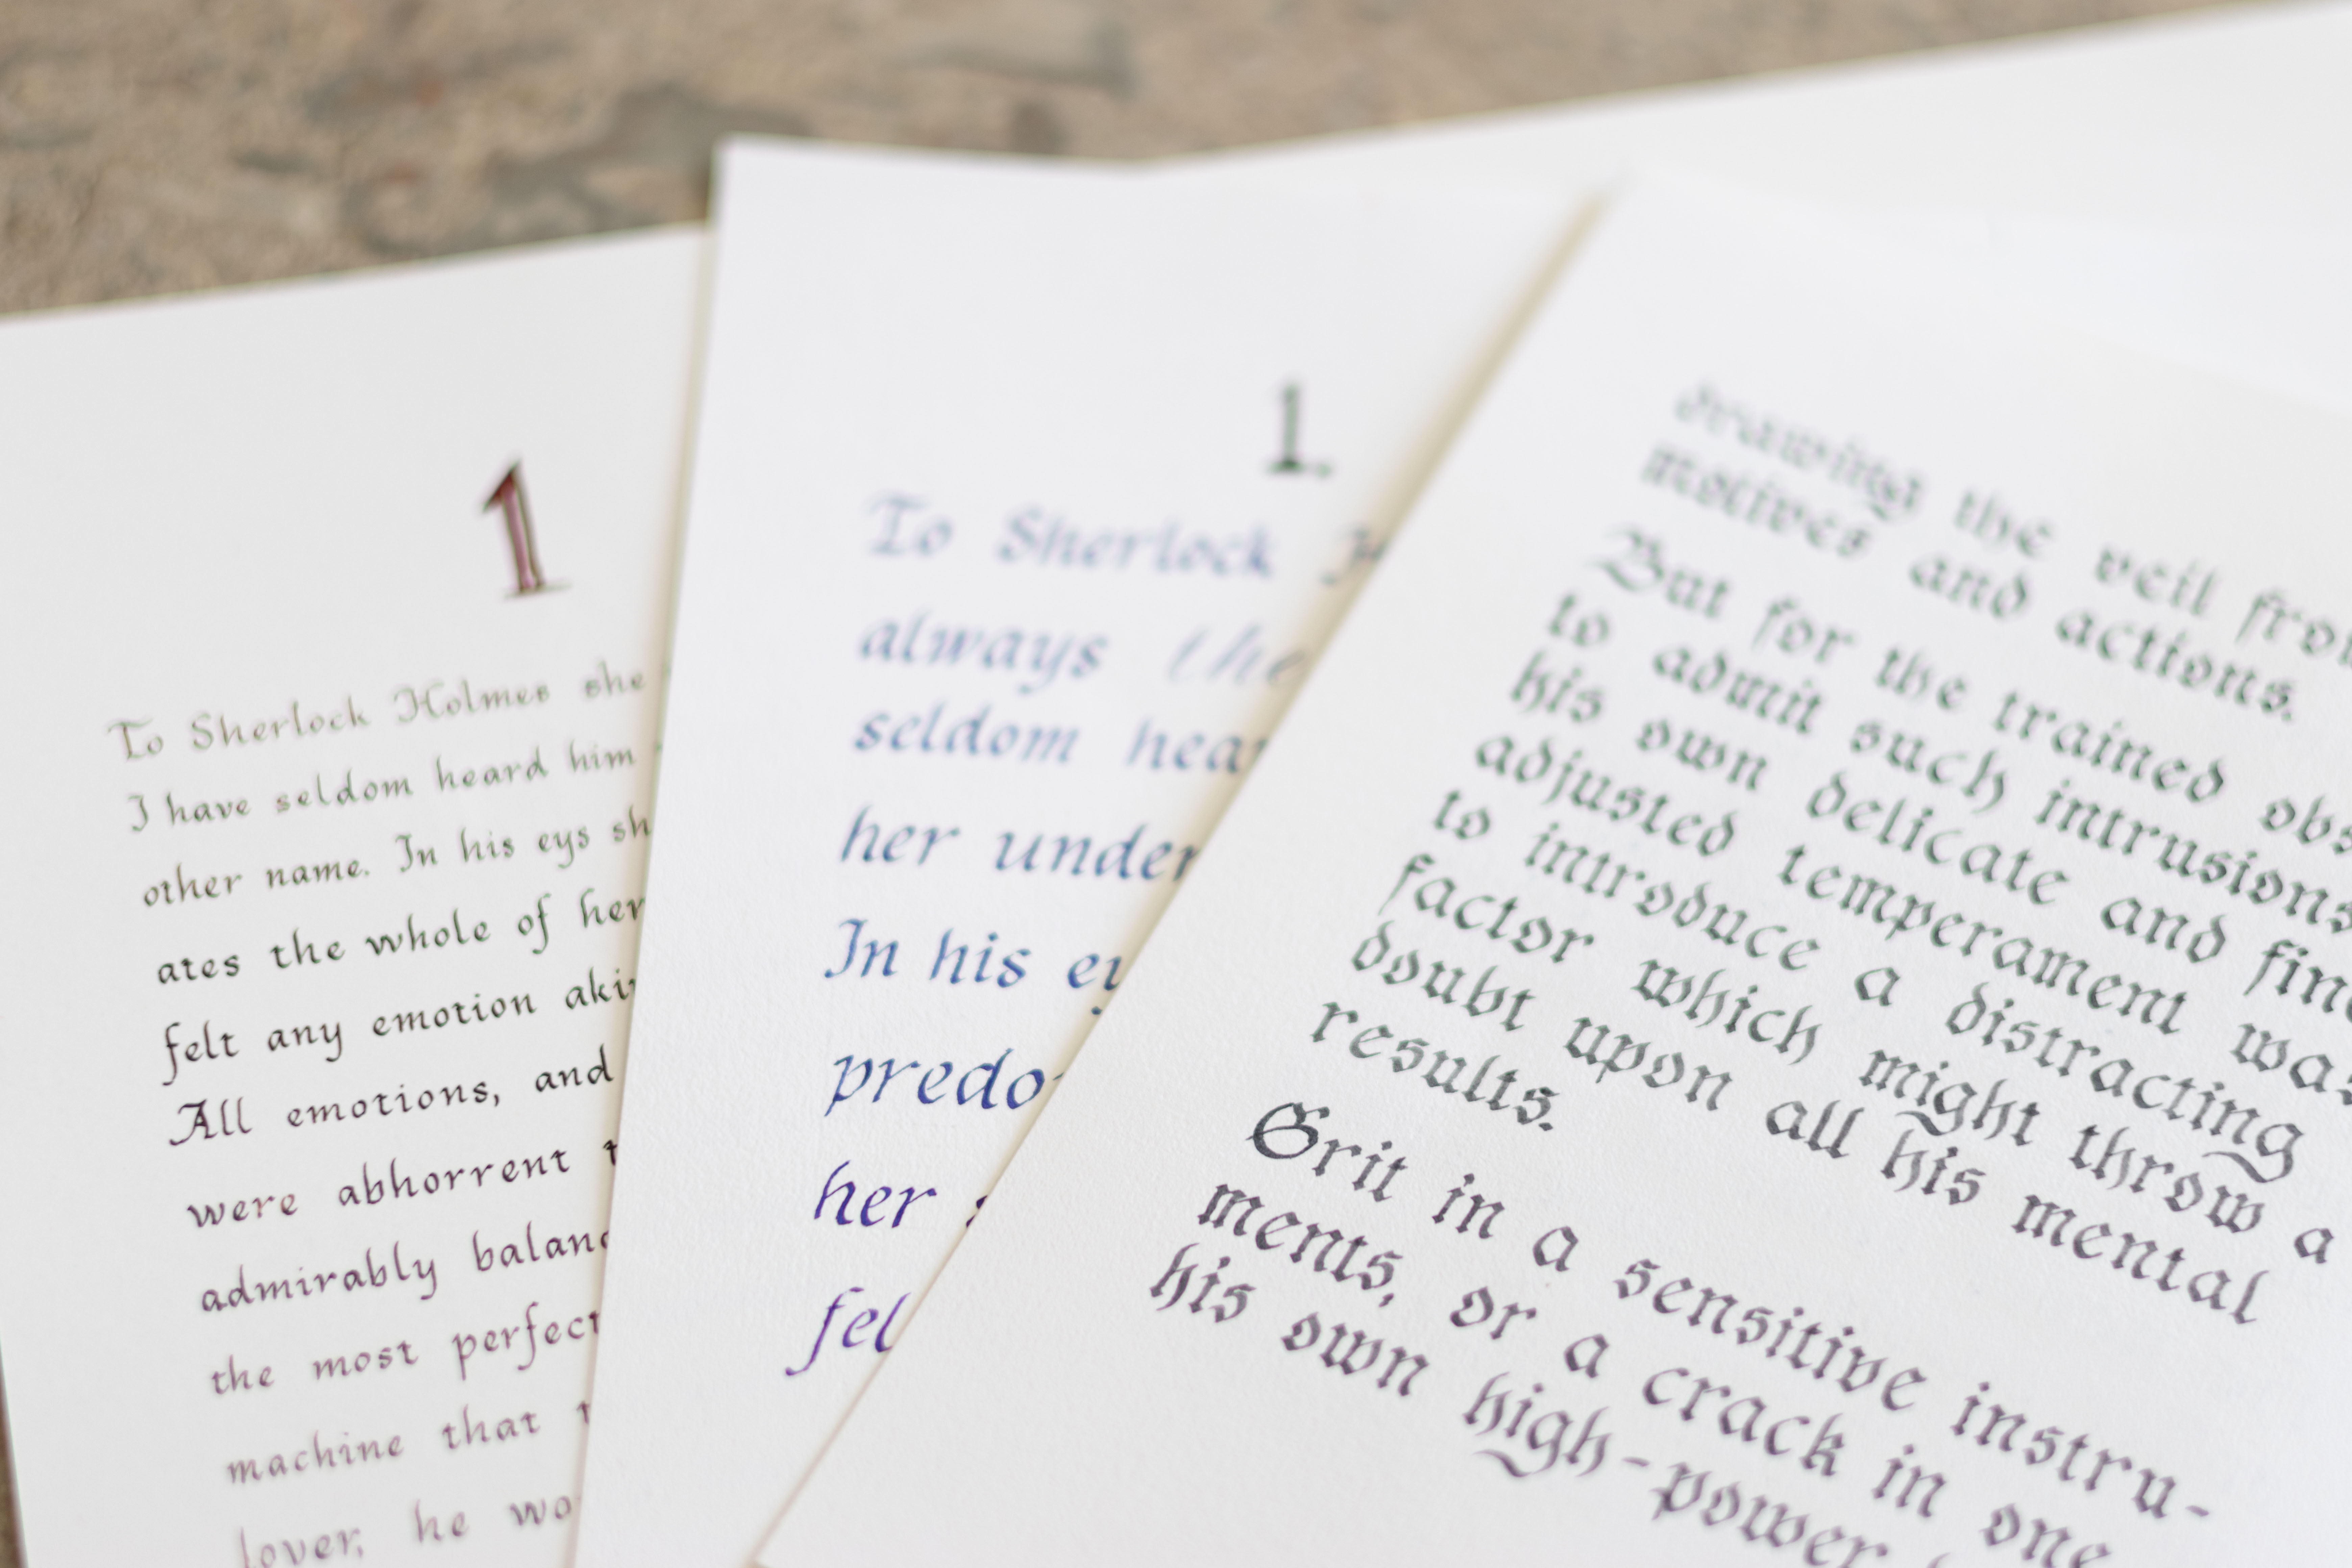 1
To Sherlock Holmes she
I have seldom heard him
other name. In his eys sh
ates the whole of her
felt any emotion aki
All emotions, and
were abhorrent t
admirably balanc
the most perfect
machine that
lover, he wo
1.
To Sherlock H
always the
seldom hear
her under
In his ey
predo
her s
fel
drawing the veil from
motives and actions.
But for the trained obs
to admit such intrusions
his own delicate and fine
adjusted temperament was
to introduce a distracting
factor which might throw a
doubt upon all his mental
results.
Grit in a sensitive instru-
ments, or a crack in one
his own high-power